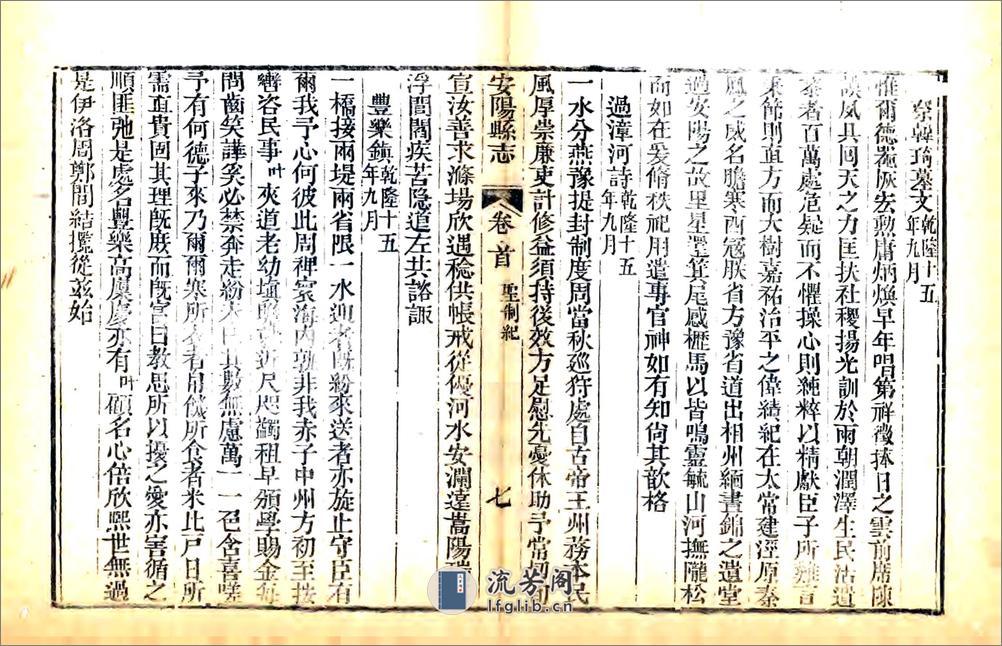 祭韓琦墓文乾隆十五年九月
惟爾德器恢宏勲庸炳煥早年唱第祥徵捧日之雲前席陳
謨夙具回天之力匡扶社稷揚光訓於兩朝潤澤生民沽遺
者百萬處危疑而不懼操心則純粹以精獻臣子所難言
秉節則直方而大樹嘉祐治平之偉績紀在太常建涇原秦
鳳之威名膽寒西冦朕省方豫省道出相州緬晝錦之遺堂
過安陽之故里星躔箕尾感櫪馬以皆鳴靈毓山河撫隴松
而如在爰脩秩祀用遣專官神如有知尙其歆格
過漳河詩乾隆十五年九月
一水分燕豫提封制度周當秋巡狩處自古帝王州務本民
風厚崇廉吏計修益須持後效方足慰先憂休助予當切
安陽縣志 卷首 聖制紀 七
宣汝善求滌場欣遇稔供帳戒從優河水安瀾遠嵩陽
浮閭閻疾苦隱道左共諮諏
豐樂鎮乾隆十五年九月
一橋接兩堤兩省限一水迎者旣紛來送者亦旋止守臣有
爾我予心何彼此周禆寰海內孰非我赤子中州方初至按
轡咨民事叶夾道老幼塡咫尺蠲租早頒學賜金每
問齒笑譁奚必禁奔走紛大已其數無慮萬一一邑含喜
予有何德子來乃爾爾寒所衣者帛饑所食者米比戸日所
需直貴固其理旣庶而旣富曰教思所以擾之愛亦害循之
順匪弛是處名豐樂高廩慶亦有叶顧名心倍欣熙世無過
是伊洛周鄭間結攬從玆始
流芳阁
lfglib.cn